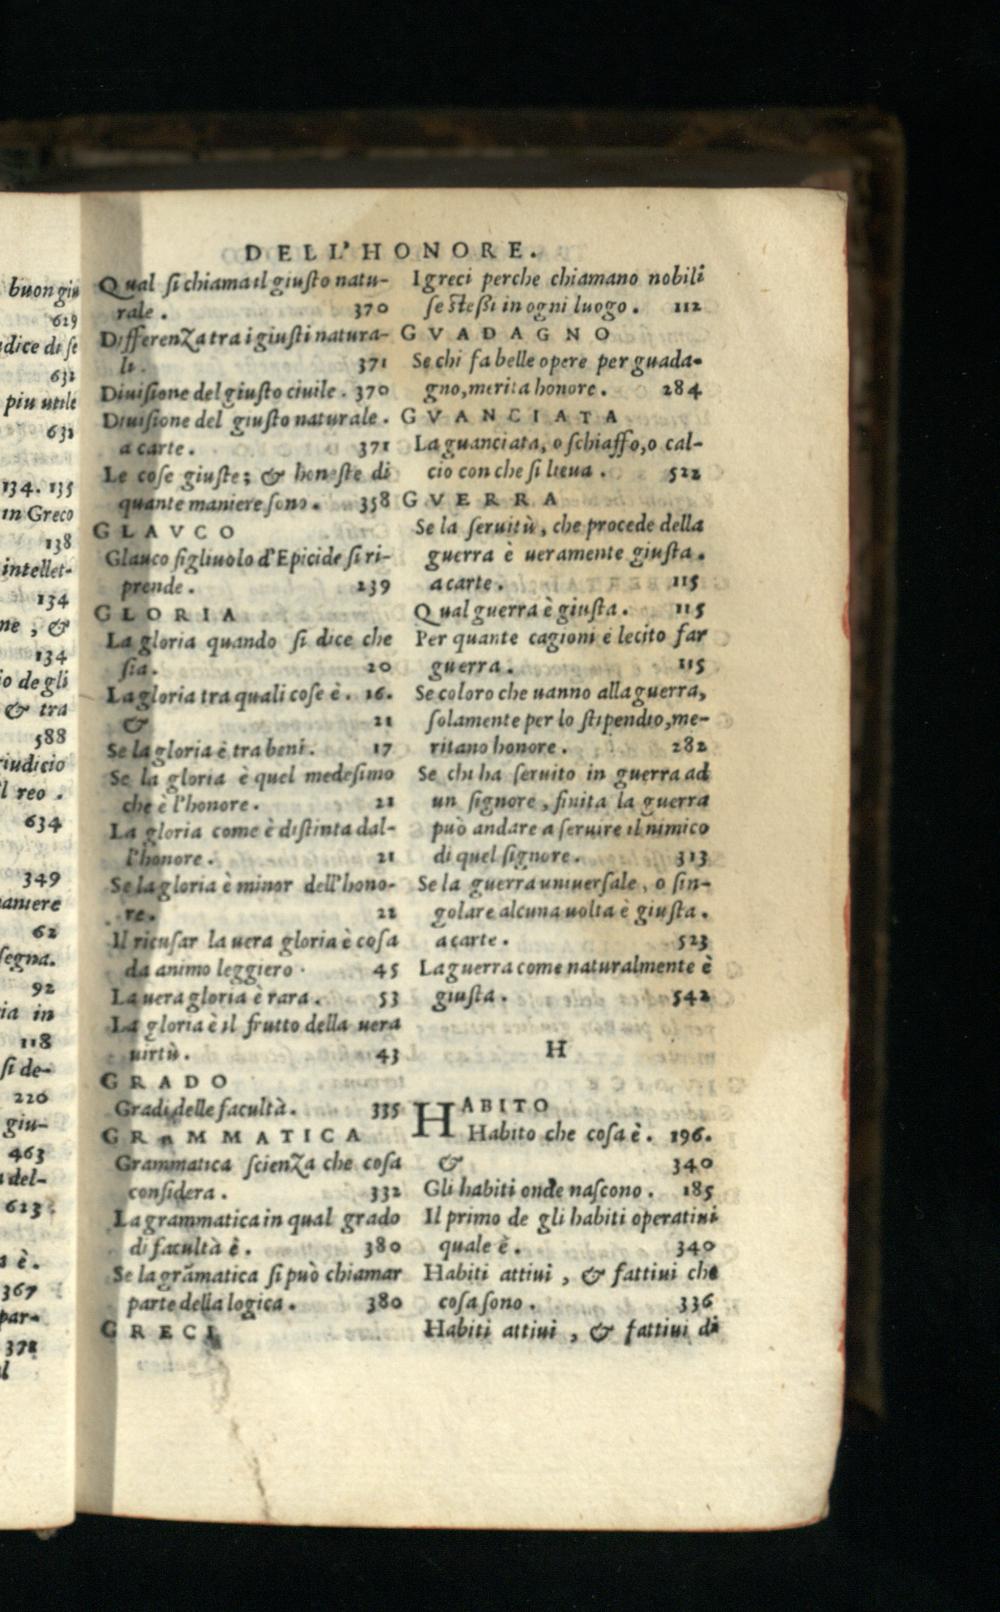 buon giu
629
udice di se
632
piu utile
631
134. 135
in Greco
138
intellet-
134
ne, &
134
io de gli
& tra
588
iudicio
l reo.
634
349
aniere
62
segna.
92
ia in
118
si de-
220
giu-
463
del-
623.
è.
367
par-
DELL'HONORE.
Qual si chiama il giusto natu-
rale. 370
Differenza tra i giusti natura-
li. 371
Diuisione del giusto ciuile. 370
Diuisione del giusto naturale.
a carte. 371
Le cose giuste; & honeste di
quante maniere sono. 358
GLAVCO
Glauco figliuolo d'Epicide si ri-
prende. 239
GLORIA
La gloria quando si dice che
sia. 20
La gloria tra quali cose è. 16.
& 21
Se la gloria è tra beni. 17
Se la gloria è quel medesimo
che è l'honore. 21
La gloria come è distinta dal-
l'honore. 21
Se la gloria è minor dell'hono-
re. 22
Il ricusar la uera gloria è cosa
da animo leggiero. 45
La uera gloria è rara. 53
La gloria è il frutto della uera
uirtù. 43
GRADO
Gradi delle facultà. 335
GRAMMATICA
Grammatica scienza che cosa
considera. 332
La grammatica in qual grado
di facultà è. 380
Se la grãmatica si può chiamar
parte della logica. 380
GRECI
I greci perche chiamano nobili
se stessi in ogni luogo. 112
GVADAGNO
Se chi fa belle opere per guada-
gno, merita honore. 284
GVANCIATA
La guanciata, o schiaffo, o cal-
cio con che si lieua. 522
GVERRA
Se la seruitù, che procede della
guerra è ueramente giusta.
a carte. 115
Qual guerra è giusta. 115
Per quante cagioni è lecito far
guerra. 115
Se coloro che uanno alla guerra,
solamente per lo stipendio, me-
ritano honore. 282
Se chi ha seruito in guerra ad
un signore, finita la guerra
può andare a seruire il nimico
di quel signore. 313
Se la guerra uniuersale, o sin-
golare alcuna uolta è giusta.
a carte. 523
La guerra come naturalmente è
giusta. 542
H
HABITO
Habito che cosa è. 196.
& 340
Gli habiti onde nascono. 185
Il primo de gli habiti operatiui
quale è. 340
Habiti attiui, & fattiui che
cosa sono. 336
Habiti attiui, & fattiui di